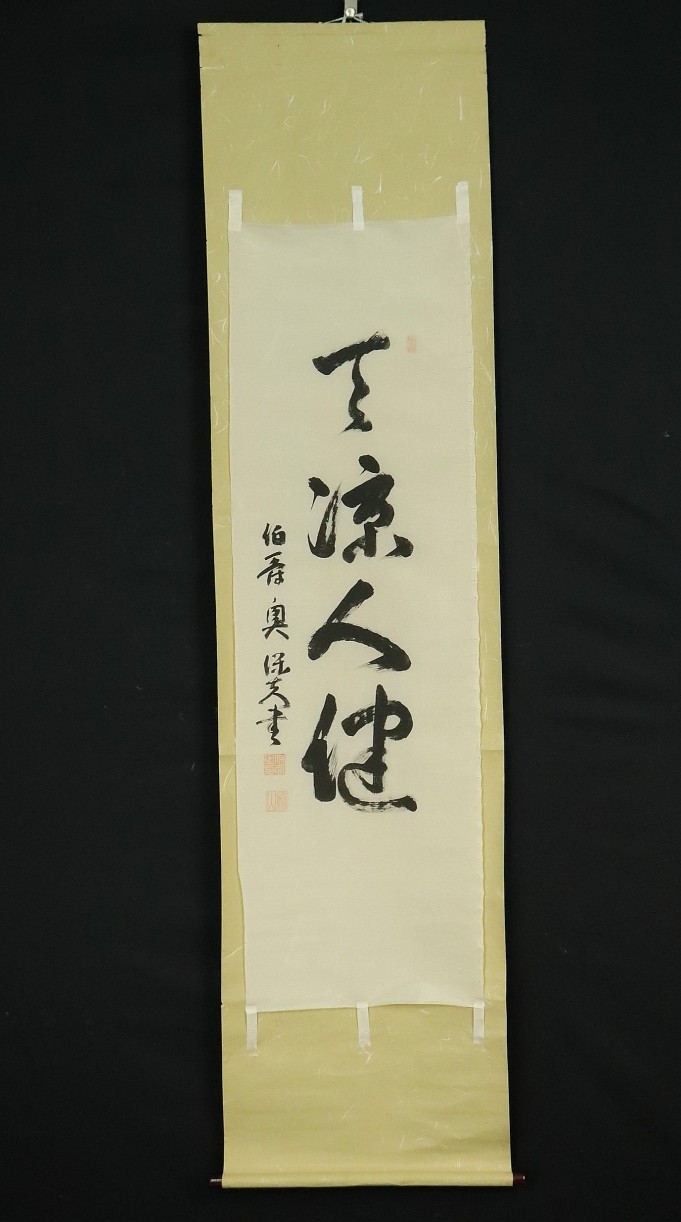 天涼人健
伯爵奥保鞏書